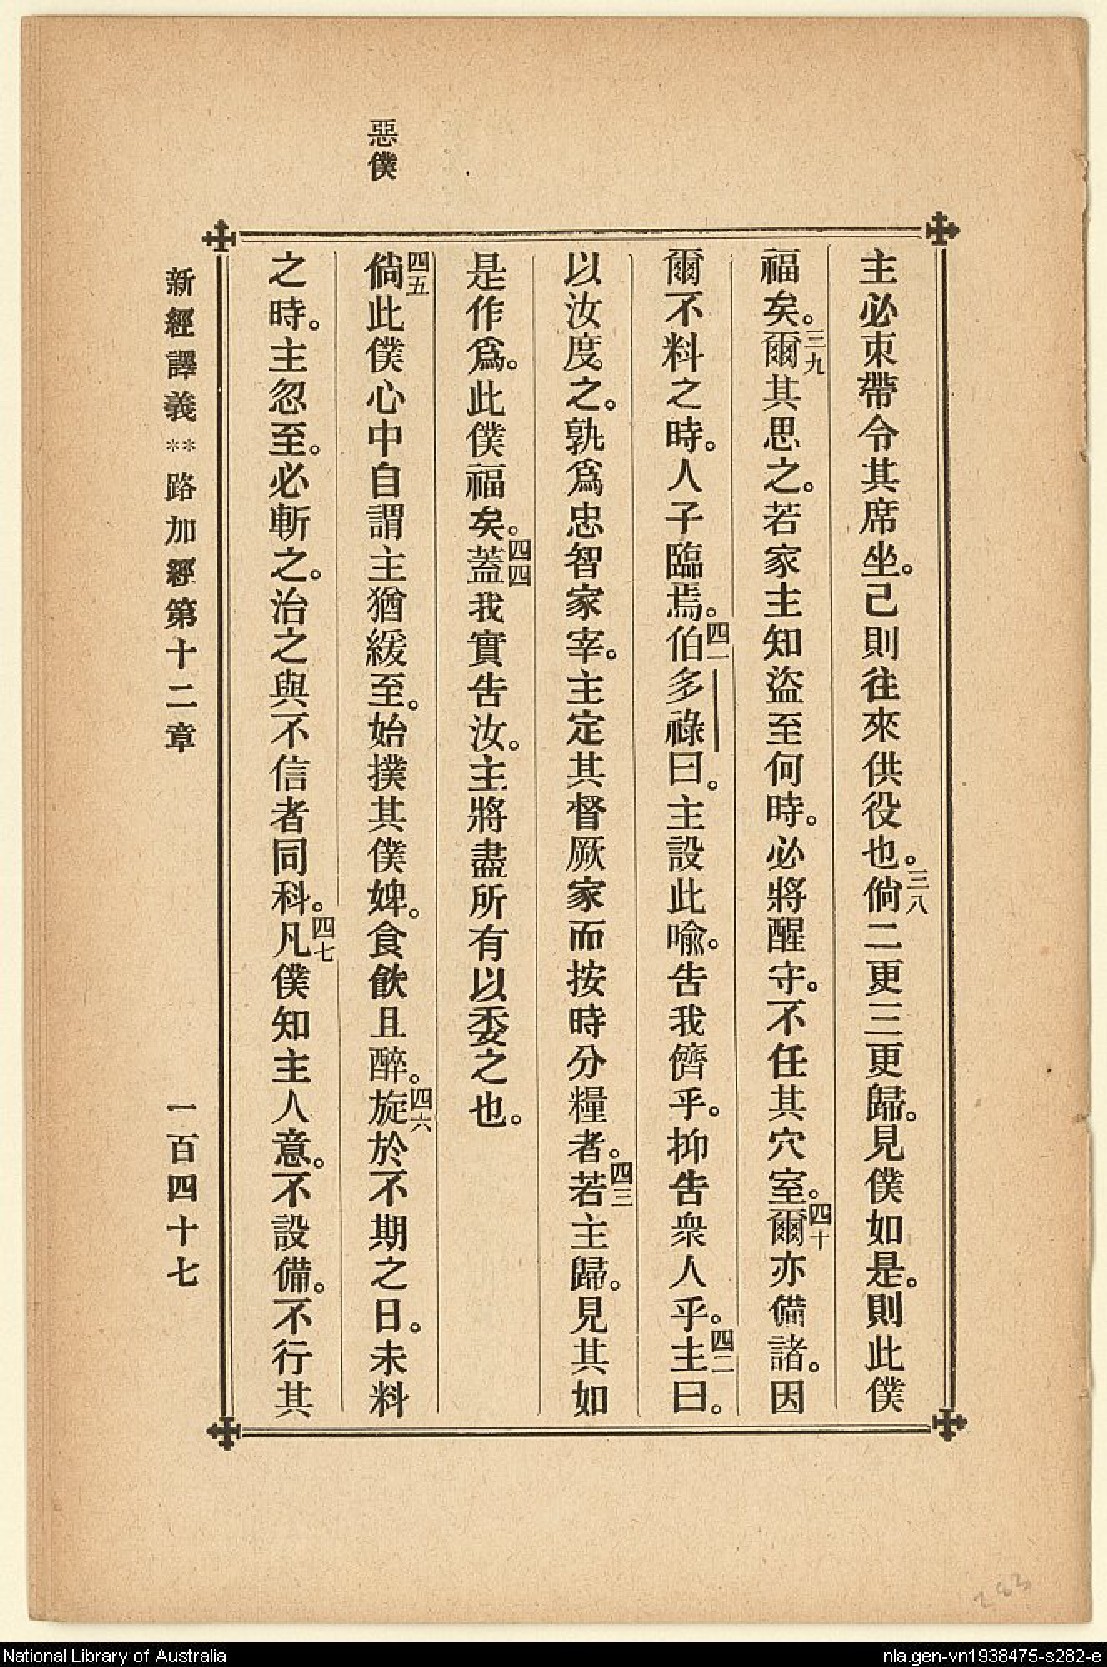 惡僕
主必束帶令其席坐。己則往來供役也。三八倘二更三更歸。見僕如是。則此僕
福矣。三九爾其思之。若家主知盜至何時。必將醒守。不任其穴室。四十爾亦備諸。因
爾不料之時。人子臨焉。四一伯多祿曰。主設此喩。告我儕乎。抑告衆人乎。四二主曰。
以汝度之。孰爲忠智家宰。主定其督厥家而按時分糧者。四三若主歸。見其如
是作爲。此僕福矣。四四蓋我實告汝。主將盡所有以委之也。
四五倘此僕心中自謂主猶緩至。始撲其僕婢。食飮且醉。四六旋於不期之日。未料
之時。主忽至。必斬之。治之與不信者同科。四七凡僕知主人意。不設備。不行其
新經譯義**路加經第十二章 一百四十七
283
National Library of Australia
nla.gen-vn1938475-s282-e